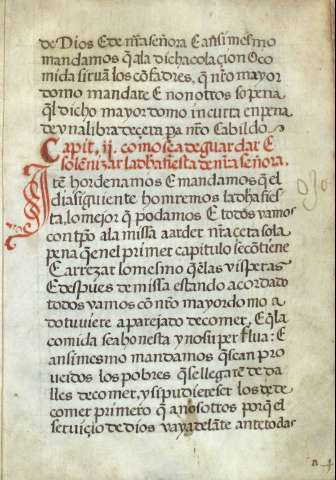 de Dios E de nr̃a señora E ansimesmo
mandamos q̃ ala dicha colaçion O co
mida si tuã los cõfadres, q̃ nr̃o mayor
domo mandare E no no otros so pena
q̃l dicho mayor domo incurta en pena
de vna libra de çera pa nr̃o Cabildo.
Capit. ij. como se a de guardar E
solenizar la dh̃a fiesta de nr̃a señora.
Itẽ hordenamos E mandamos q̃ el
dia siguiente honrremos la dh̃a fies
ta, lo mejor q̃ podamos E todos vamos
con tpõ a la missa a arder nr̃a çeta so la
pena q̃ en el primer capitulo se cõtiene
E a rrezar lo mesmo q̃ elas visperas
E despues de missa estando acordado
todos vamos cõ nr̃o mayordomo a
do tuuiere aparejado de comer, E q̃ la
comida sea honesta y no superflua: E
ansimesmo mandamos q̃ sean pro
ueidos los pobres q̃ se llegarẽ de da
lles de comer, y si pudiere ser los dẽ de
comer primero q̃ a nosotros porq̃ el
seruiçio de dios vaya delãte ante todas